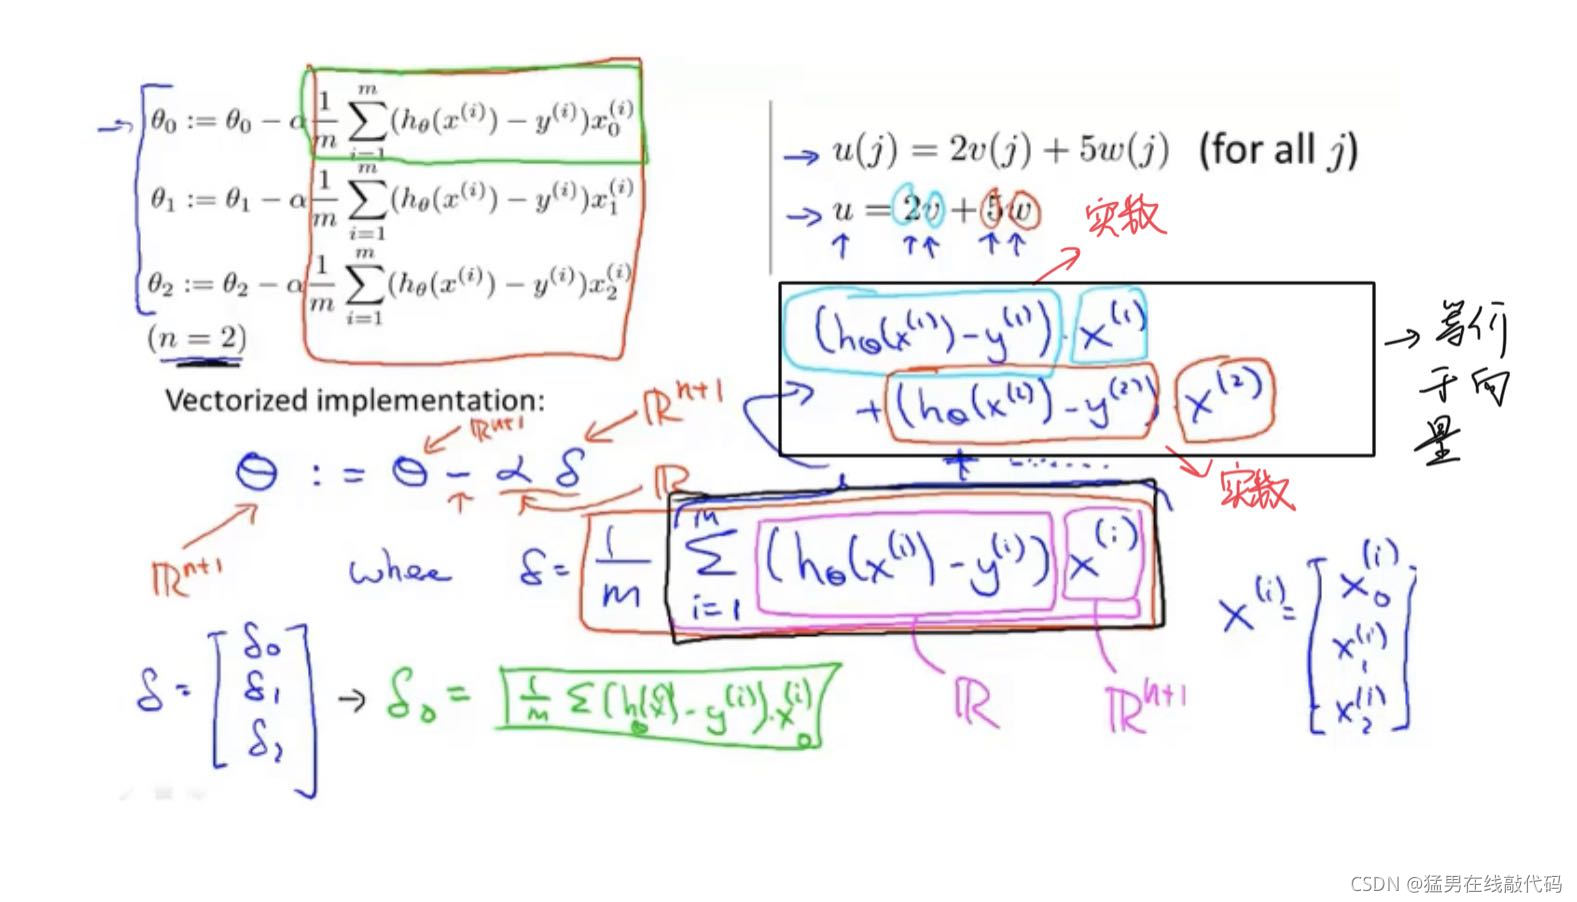 θ₀ := θ₀ − α 1/m ∑_{i=1}^{m} (h_θ(x^{(i)}) − y^{(i)})x₀^{(i)}
θ₁ := θ₁ − α 1/m ∑_{i=1}^{m} (h_θ(x^{(i)}) − y^{(i)})x₁^{(i)}
θ₂ := θ₂ − α 1/m ∑_{i=1}^{m} (h_θ(x^{(i)}) − y^{(i)})x₂^{(i)}
(n = 2)
→ u(j) = 2v(j) + 5w(j) (for all j)
→ u = 2v + 5w
实数
(h_θ(x^{(1)}) − y^{(1)}) · x^{(1)}
+ (h_θ(x^{(2)}) − y^{(2)}) x^{(2)}
+ ......
实数
→ 等
于向
量
Vectorized implementation:
ℝ^{n+1}
ℝ^{n+1}
θ := θ − α δ
ℝ
ℝ^{n+1}
where δ = 1/m ∑_{i=1}^{m} (h_θ(x^{(i)}) − y^{(i)}) x^{(i)}
ℝ
ℝ^{n+1}
x^{(i)} = [x₀^{(i)} x₁^{(i)} x₂^{(i)}]
δ = [δ₀ δ₁ δ₂] → δ₀ = 1/m ∑ (h_θ(x^{(i)}) − y^{(i)}) · x₀^{(i)}
CSDN @猛男在线敲代码